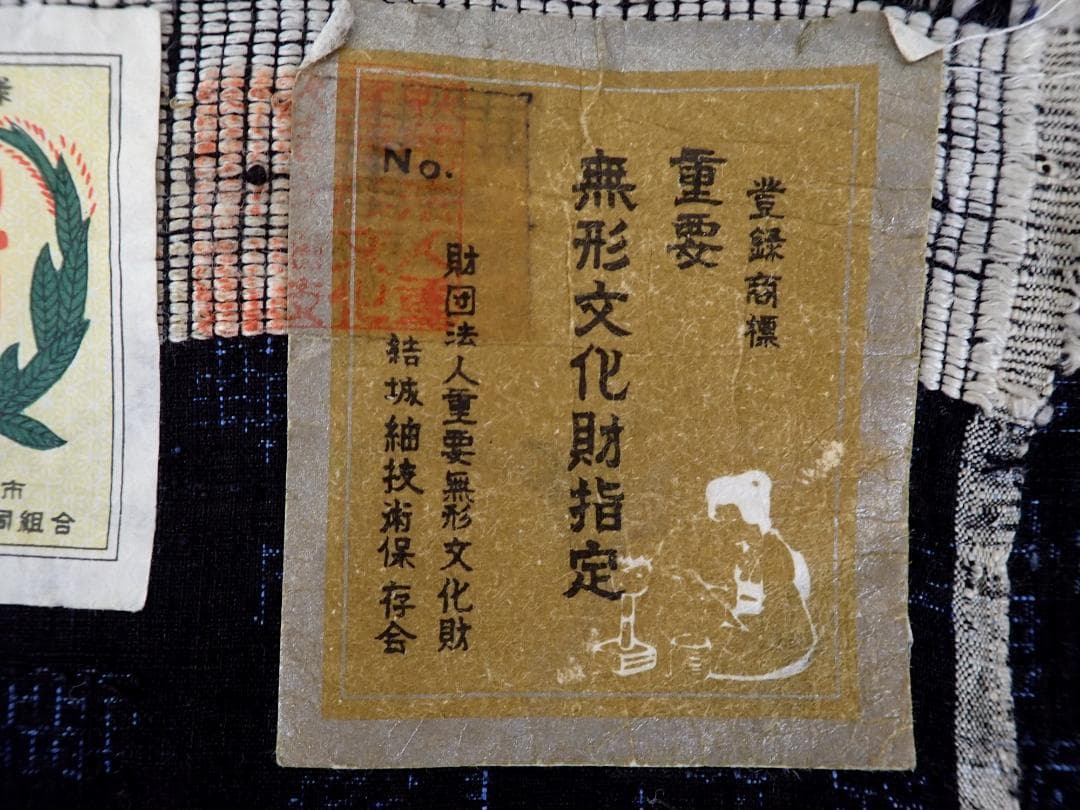 登録商標
重要
無形文化財指定
No.
財団法人重要無形文化財
結城紬技術保存会
市
同組合